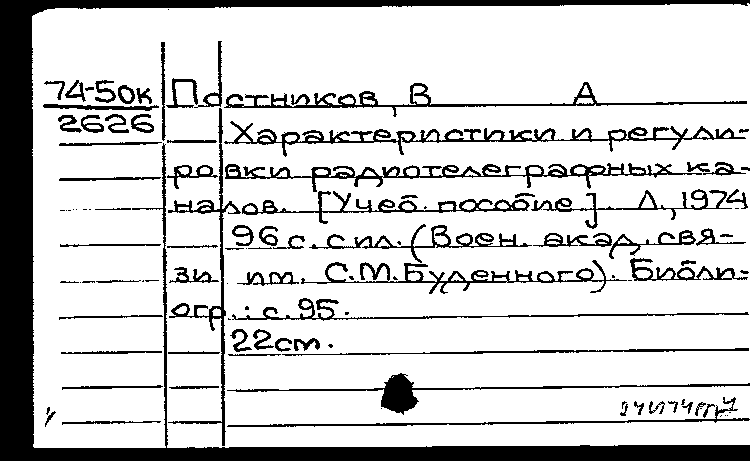 74-50к Постников, В А
2626 Характеристики и регули-
ровки радиотелеграфных ка-
налов. [Учеб. пособие]. Л., 1974
96 с. с ил. (Воен. акад. свя-
зи им. С.М.Буденного). Библи-
огр.: с. 95.
22 см.